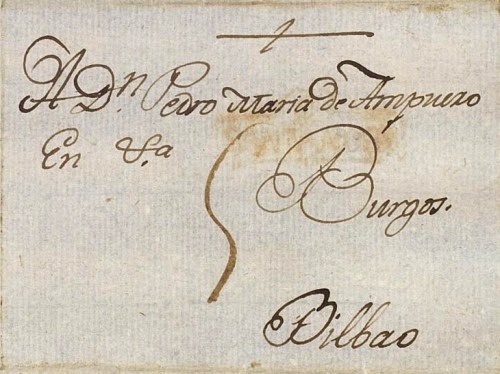 A Dn. Pedro Maria de Ampuero
En
5
Burgos.
Bilbao